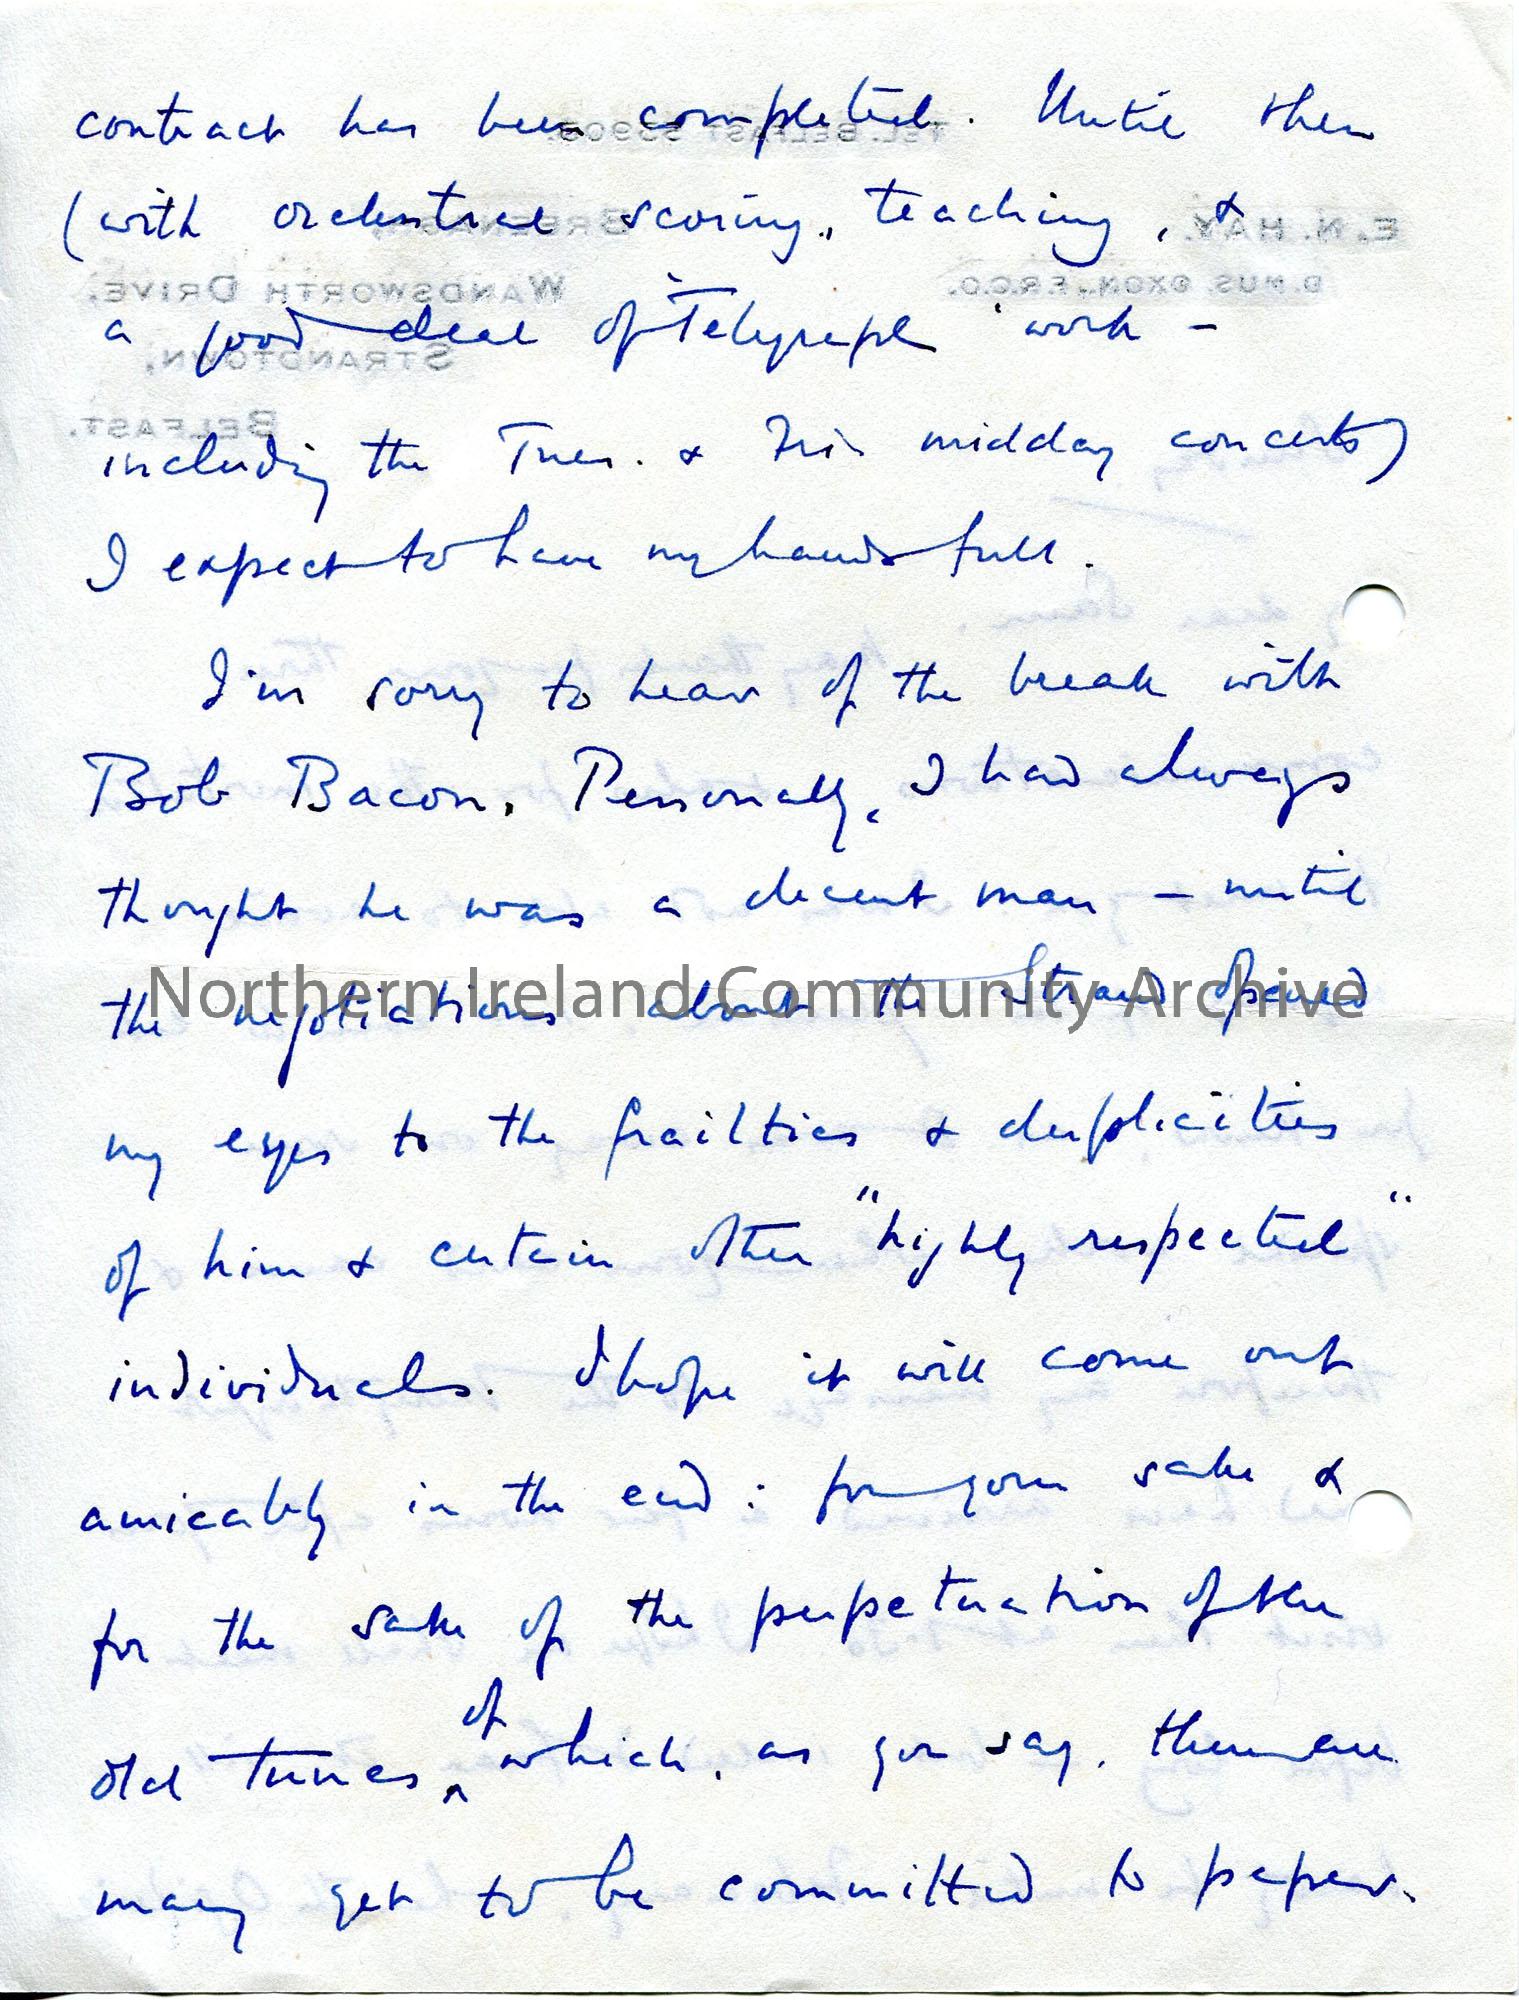 contract has been completed. Until then
(with orchestral scoring, teaching, &
a good deal of Telegraph work -
including the Tues. & Fri. midday concerts)
I expect to have my hands full.
I'm sorry to hear of the break with
Bob Bacon. Personally, I had always
thought he was a decent man - until
the negotiations about the Strand opened
my eyes to the frailties & duplicities
of him & certain other "highly respected"
individuals. I hope it will come out
amicably in the end: for your sake &
for the sake of the perpetuation of the
old tunes, of which, as you say, there are
many yet to be committed to paper.
Northern Ireland Community Archive
TEL. BELFAST
E. N. HAY.
D. MUS. OXON., F.R.C.O.
WANDSWORTH DRIVE,
STRANDTOWN,
BELFAST.